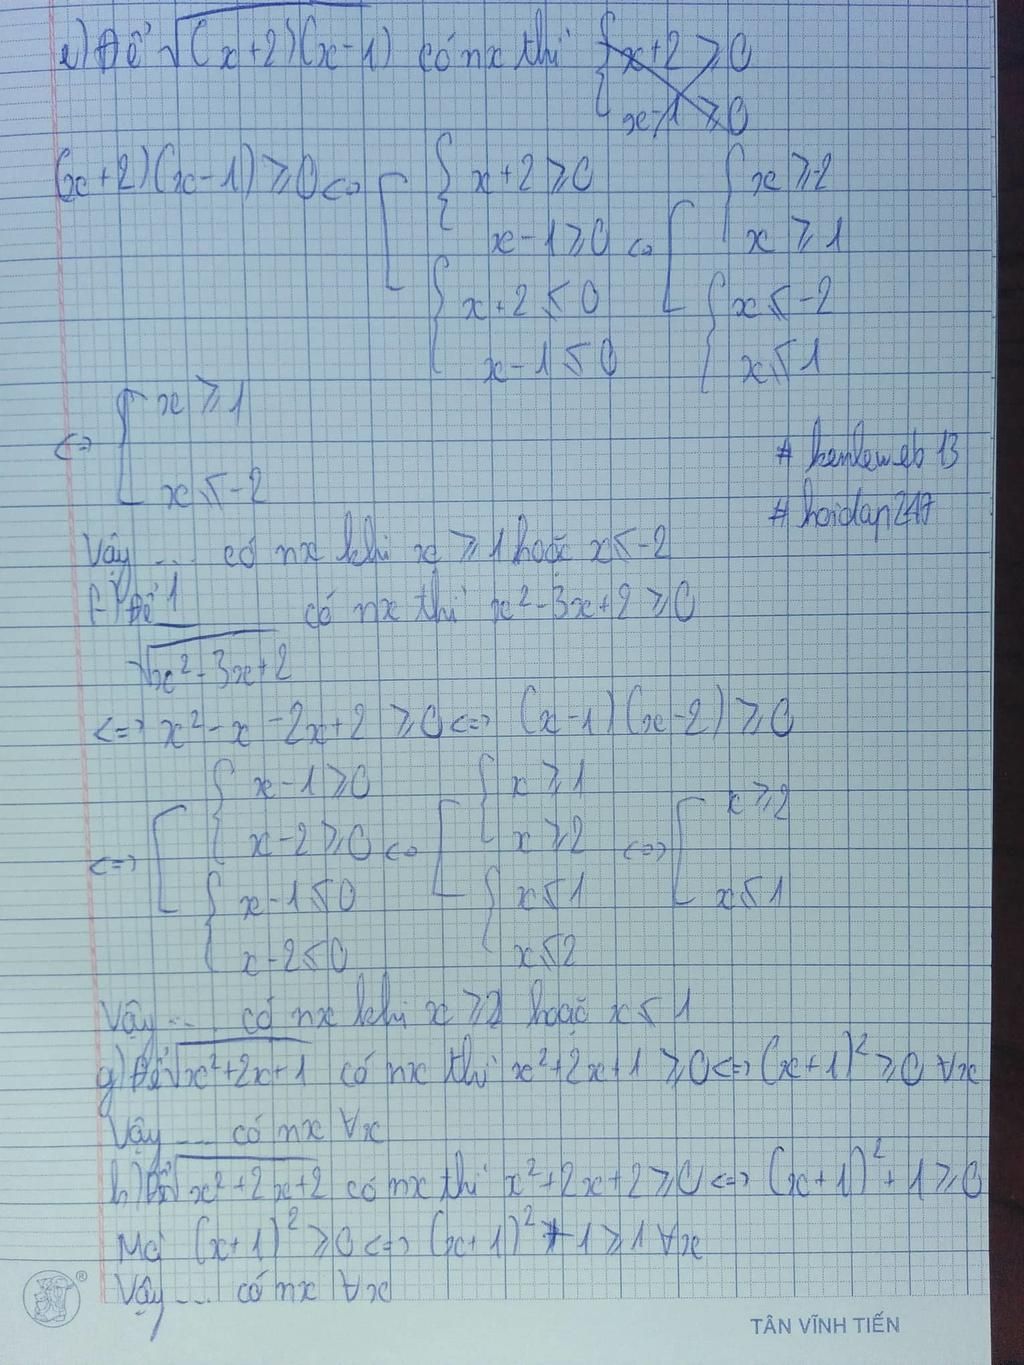 e) Để √(x+2)(x-1) có nx thì { x+2 ≥ 0
x-1 ≥ 0
(x+2)(x-1) ≥ 0 <=> [ { x+2 ≥ 0 { x ≥ -2
x-1 ≥ 0 <=> [ x ≥ 1
{ x+2 ≤ 0 { x ≤ -2
x-1 ≤ 0 x ≤ 1
<=> [ x ≥ 1
x ≤ -2
# kenleweb 13
# hoidap247
Vậy ... có nx khi x ≥ 1 hoặc x ≤ -2
f) Để 1 có nx thì x² - 3x + 2 ≥ 0
√x² - 3x + 2
<=> x² - x - 2x + 2 ≥ 0 <=> (x-1)(x-2) ≥ 0
{ x-1 ≥ 0 { x ≥ 1 x ≥ 2
<=> [ x-2 ≥ 0 <=> [ x ≥ 2 <=> [
{ x-1 ≤ 0 { x ≤ 1 x ≤ 1
x-2 ≤ 0 x ≤ 2
Vậy ... có nx khi x ≥ 2 hoặc x ≤ 1
g) Để √x²+2x+1 có nx thì x²+2x+1 ≥ 0 <=> (x+1)² ≥ 0 ∀x
Vậy ... có nx ∀x
h) Để √x²+2x+2 có nx thì x²+2x+2 ≥ 0 <=> (x+1)² + 1 ≥ 0
Mà (x+1)² ≥ 0 <=> (x+1)² + 1 ≥ 1 ∀x
Vậy ... có nx ∀x
®
TÂN VĨNH TIẾN